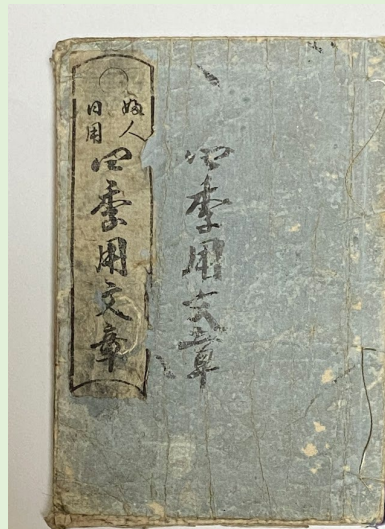 婦人
日用
四季用文章
四季用文章